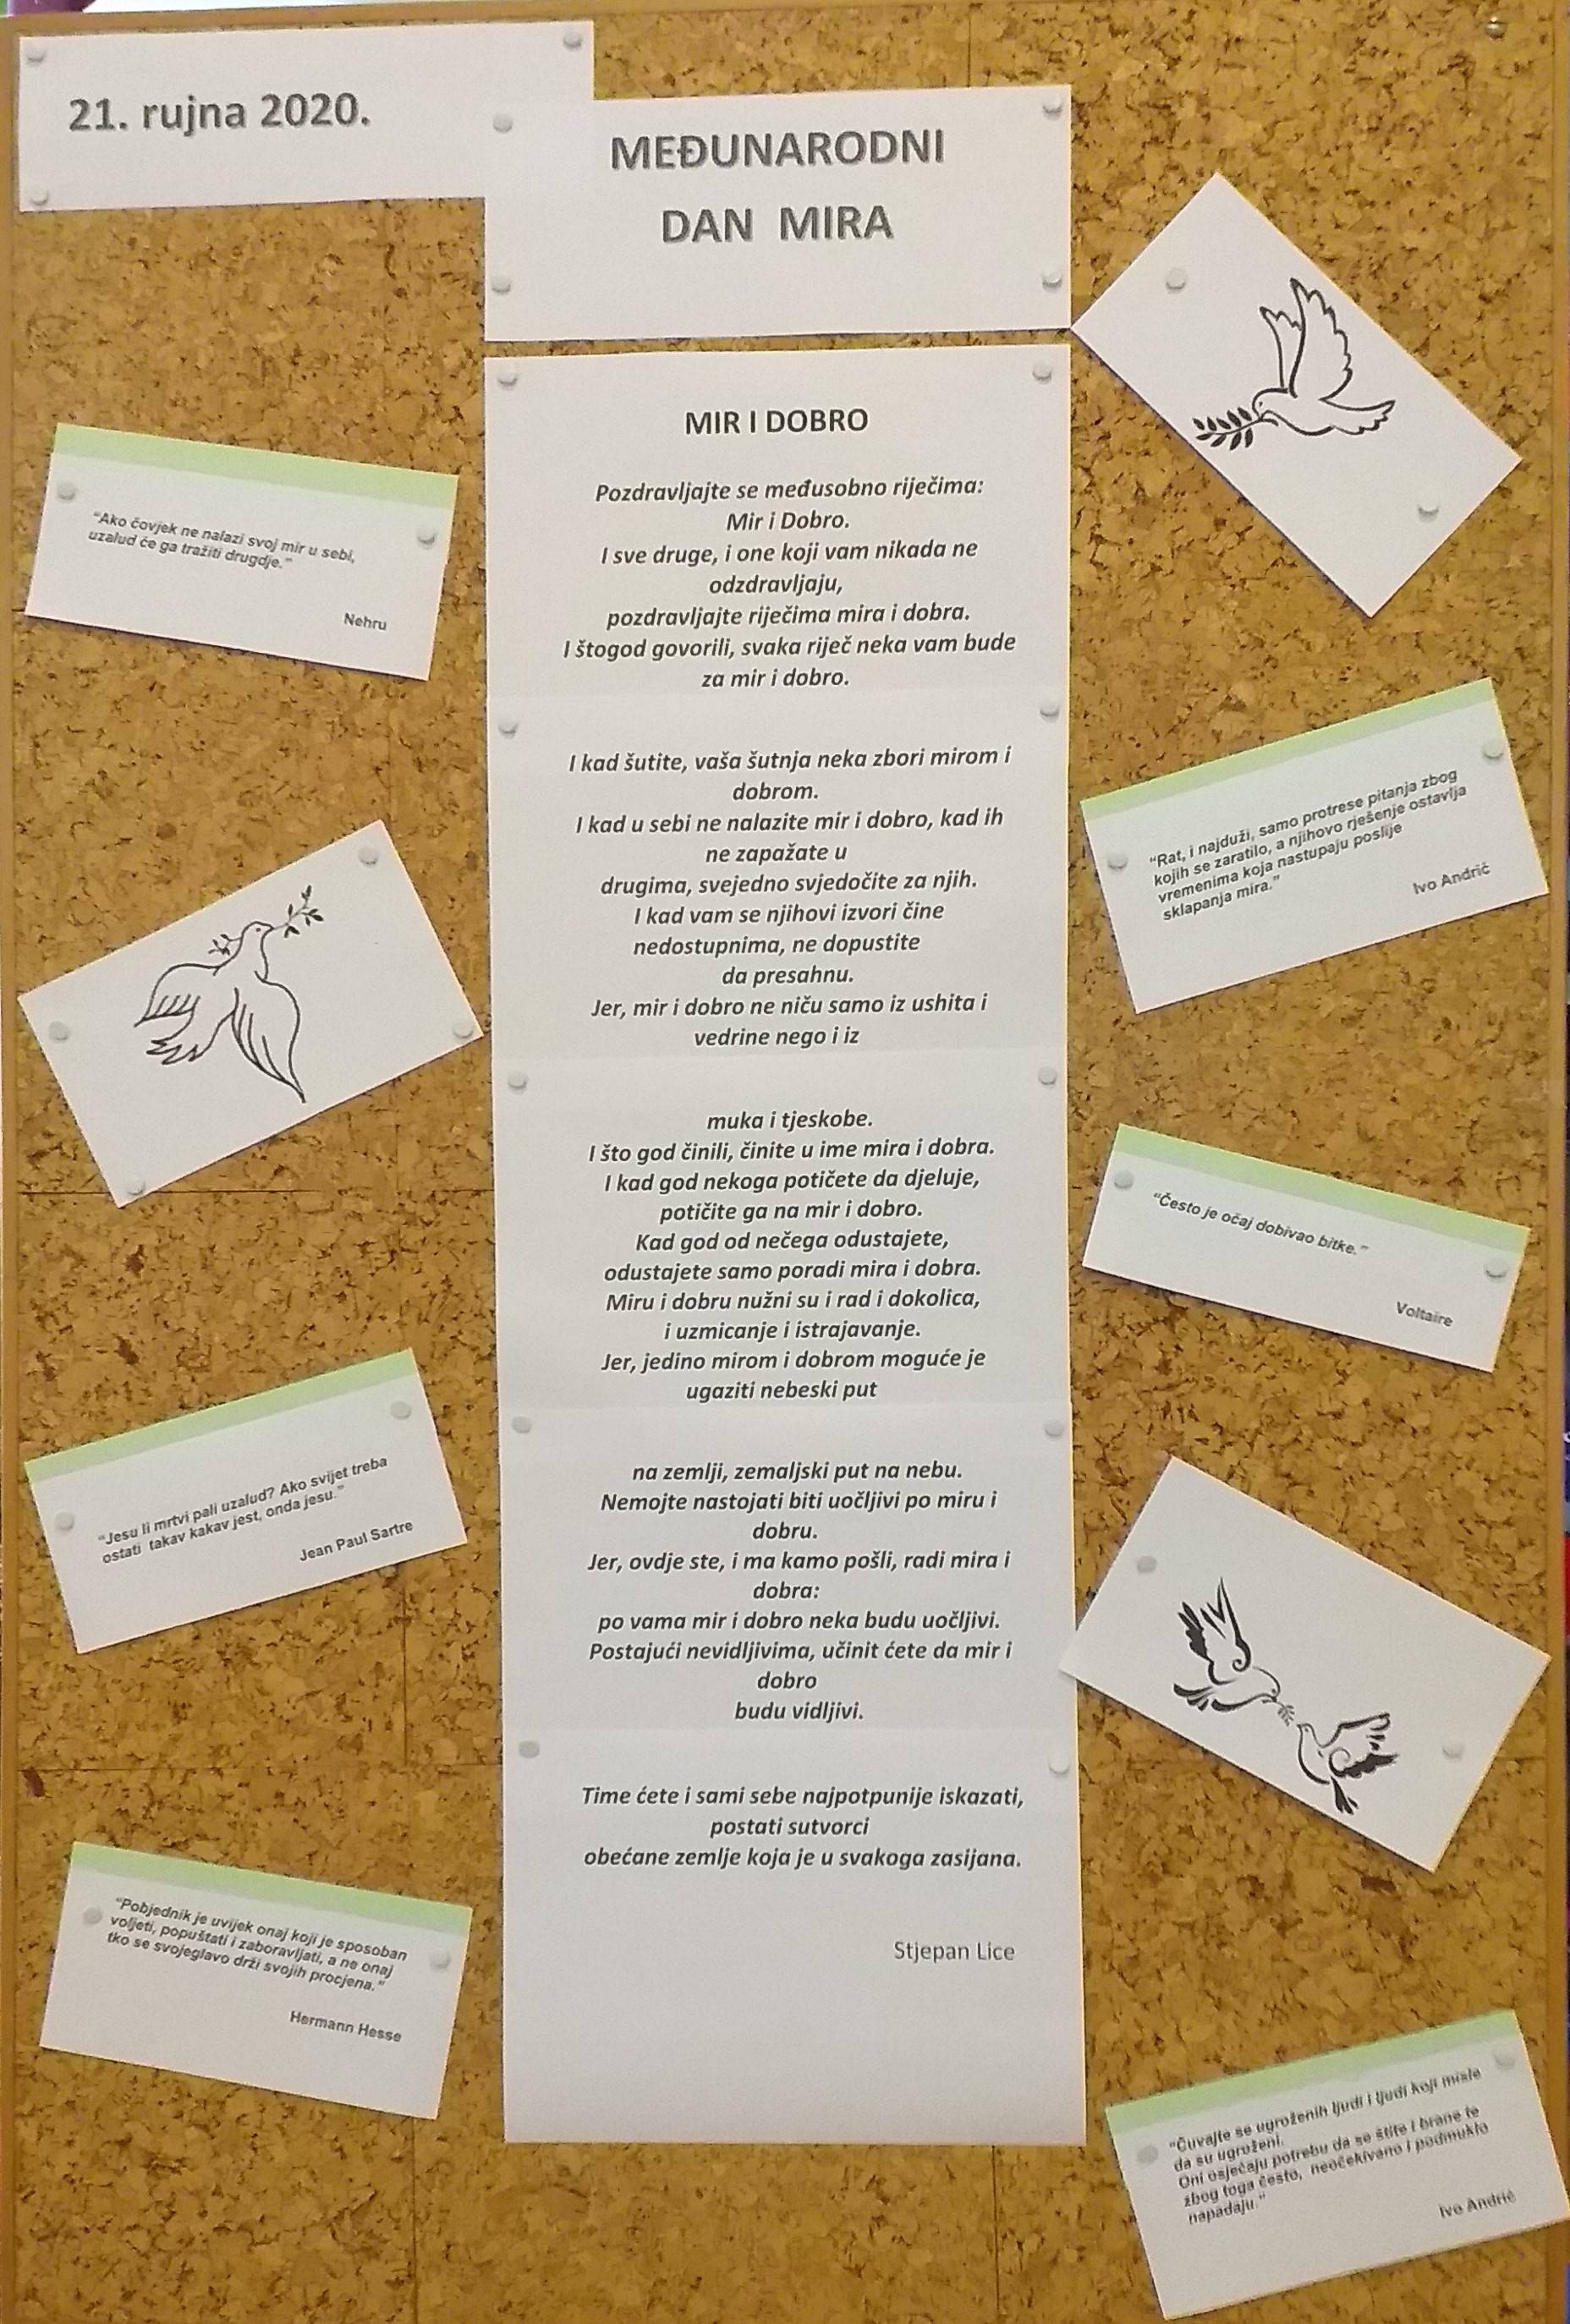 21. rujna 2020.
MEĐUNARODNI
DAN MIRA
MIR I DOBRO
Pozdravljajte se međusobno riječima:
Mir i Dobro.
I sve druge, i one koji vam nikada ne
odzdravljaju,
pozdravljajte riječima mira i dobra.
I štogod govorili, svaka riječ neka vam bude
za mir i dobro.
I kad šutite, vaša šutnja neka zbori mirom i
dobrom.
I kad u sebi ne nalazite mir i dobro, kad ih
ne zapažate u
drugima, svejedno svjedočite za njih.
I kad vam se njihovi izvori čine
nedostupnima, ne dopustite
da presahnu.
Jer, mir i dobro ne niču samo iz ushita i
vedrine nego i iz
muka i tjeskobe.
I što god činili, činite u ime mira i dobra.
I kad god nekoga potičete da djeluje,
potičite ga na mir i dobro.
Kad god od nečega odustajete,
odustajete samo poradi mira i dobra.
Miru i dobru nužni su i rad i dokolica,
i uzmicanje i istrajavanje.
Jer, jedino mirom i dobrom moguće je
ugaziti nebeski put
na zemlji, zemaljski put na nebu.
Nemojte nastojati biti uočljivi po miru i
dobru.
Jer, ovdje ste, i ma kamo pošli, radi mira i
dobra:
po vama mir i dobro neka budu uočljivi.
Postajući nevidljivima, učinit ćete da mir i
dobro
budu vidljivi.
Time ćete i sami sebe najpotpunije iskazati,
postati sutvorci
obećane zemlje koja je u svakoga zasijana.
Stjepan Lice
"Ako čovjek ne nalazi svoj mir u sebi,
uzalud će ga tražiti drugdje."
Nehru
"Jesu li mrtvi pali uzalud? Ako svijet treba
ostati takav kakav jest, onda jesu."
Jean Paul Sartre
"Pobjednik je uvijek onaj koji je sposoban
voljeti, popuštati i zaboravljati, a ne onaj
tko se svojeglavo drži svojih procjena."
Hermann Hesse
"Rat, i najduži, samo protrese pitanja zbog
kojih se zaratilo, a njihovo rješenje ostavlja
vremenima koja nastupaju poslije
sklapanja mira."
Ivo Andrić
"Često je očaj dobivao bitke."
Voltaire
"Čuvajte se ugroženih ljudi i ljudi koji misle
da su ugroženi.
Oni osjećaju potrebu da se štite i brane te
zbog toga često, neočekivano i podmuklo
napadaju."
Ivo Andrić